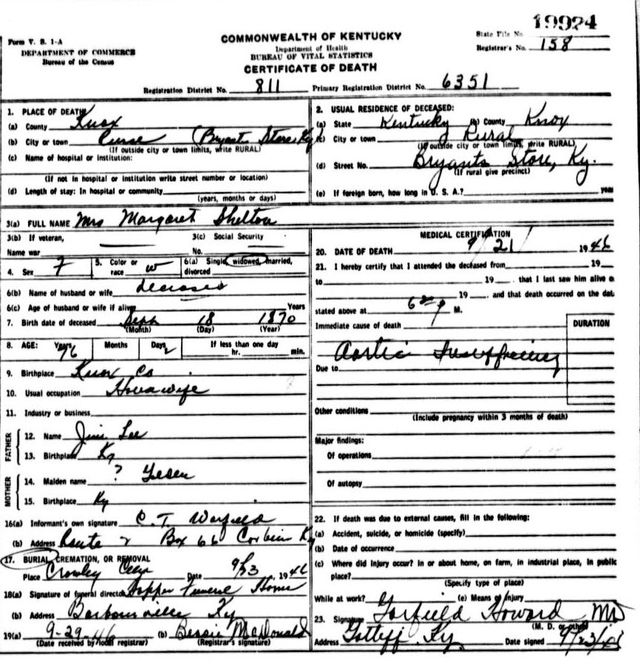 19924
Form V. S. 1-A
COMMONWEALTH OF KENTUCKY
State File No.
DEPARTMENT OF COMMERCE
Department of Health
Registrar's No. 158
Bureau of the Census
BUREAU OF VITAL STATISTICS
CERTIFICATE OF DEATH
Registration District No. 811 Primary Registration District No. 6351
1. PLACE OF DEATH
(a) County Knox
(b) City or town Rural (Bryant Store, Ky
(If outside city or town limits, write RURAL)
(c) Name of hospital or institution:
(If not in hospital or institution write street number or location)
(d) Length of stay: In hospital or community
(years, months or days)
2. USUAL RESIDENCE OF DECEASED:
(a) State Kentucky (b) County Knox
(c) City or town Rural
(If outside city or town limits, write RURAL)
(d) Street No. Bryants Store, Ky.
(If rural give precinct)
(e) If foreign born, how long in U. S. A.? years
3(a) FULL NAME Mrs Margaret Shelton
3(b) If veteran,
3(c) Social Security
Name war No.
4. Sex F 5. Color or race W 6(a) Single, widowed, married, divorced
6(b) Name of husband or wife deceased
6(c) Age of husband or wife if alive Years
7. Birth date of deceased Sept 18 1870
(Month) (Day) (Year)
8. AGE: Years Months Days If less than one day
76 2 hr. min.
9. Birthplace Knox Co
10. Usual occupation Housewife
11. Industry or business
FATHER
12. Name Jim Lee
13. Birthplace Ky
MOTHER
14. Maiden name ?
15. Birthplace Ky
16(a) Informant's own signature C. T. Warfield
(b) Address Route 2 Box 66 Corbin Ky
17. BURIAL, CREMATION, OR REMOVAL
Place Date 9/23 1946
18(a) Signature of funeral director Hopper Funeral Home
(b) Address Barbourville Ky
19(a) 9-29-46 (b) Bessie McDonald
(Date received by local registrar) (Registrar's signature)
MEDICAL CERTIFICATION
20. DATE OF DEATH 9/21 1946
21. I hereby certify that I attended the deceased from 19
to 19 that I last saw him alive o
19 and that death occurred on the dat
stated above at M.
Immediate cause of death
DURATION
Aortic Insufficiency
Due to
Other conditions
(Include pregnancy within 3 months of death)
Major findings:
Of operations
Of autopsy
22. If death was due to external causes, fill in the following:
(a) Accident, suicide, or homicide (specify)
(b) Date of occurrence
(c) Where did injury occur? In or about home, on farm, in industrial place, in public
place?
(Specify type of place)
While at work? (e) Means of Injury
23. Signature Garfield Howard MD
(M. D. or other)
Address Gatliff Ky. Date signed 9/23/46